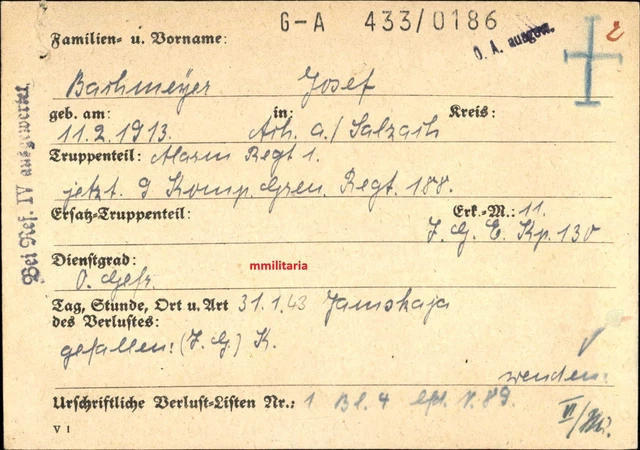 G-A 433/0186
Familien- u. Vorname:
O. A. ausgew.
2
Bachmeyer Josef
geb. am: in: Kreis:
11.2.1913. Ach a./Salzach
Truppenteil: Alarm Regt 1.
jetzt. 9 Komp. Gren. Regt. 188.
Ersatz-Truppenteil: Erk.-M.: 11.
J. G. E. Kp. 130
Dienstgrad:
O. Gefr.
mmilitaria
Tag, Stunde, Ort u. Art 31.1.43 Jamskaja
des Verlustes:
gefallen: (J. G.) K.
wenden.
Urschriftliche Verlust-Listen Nr.: 1 Bl. 4 lfd. N. 89.
VI/
V 1
Bei Ref. IV ausgewertet